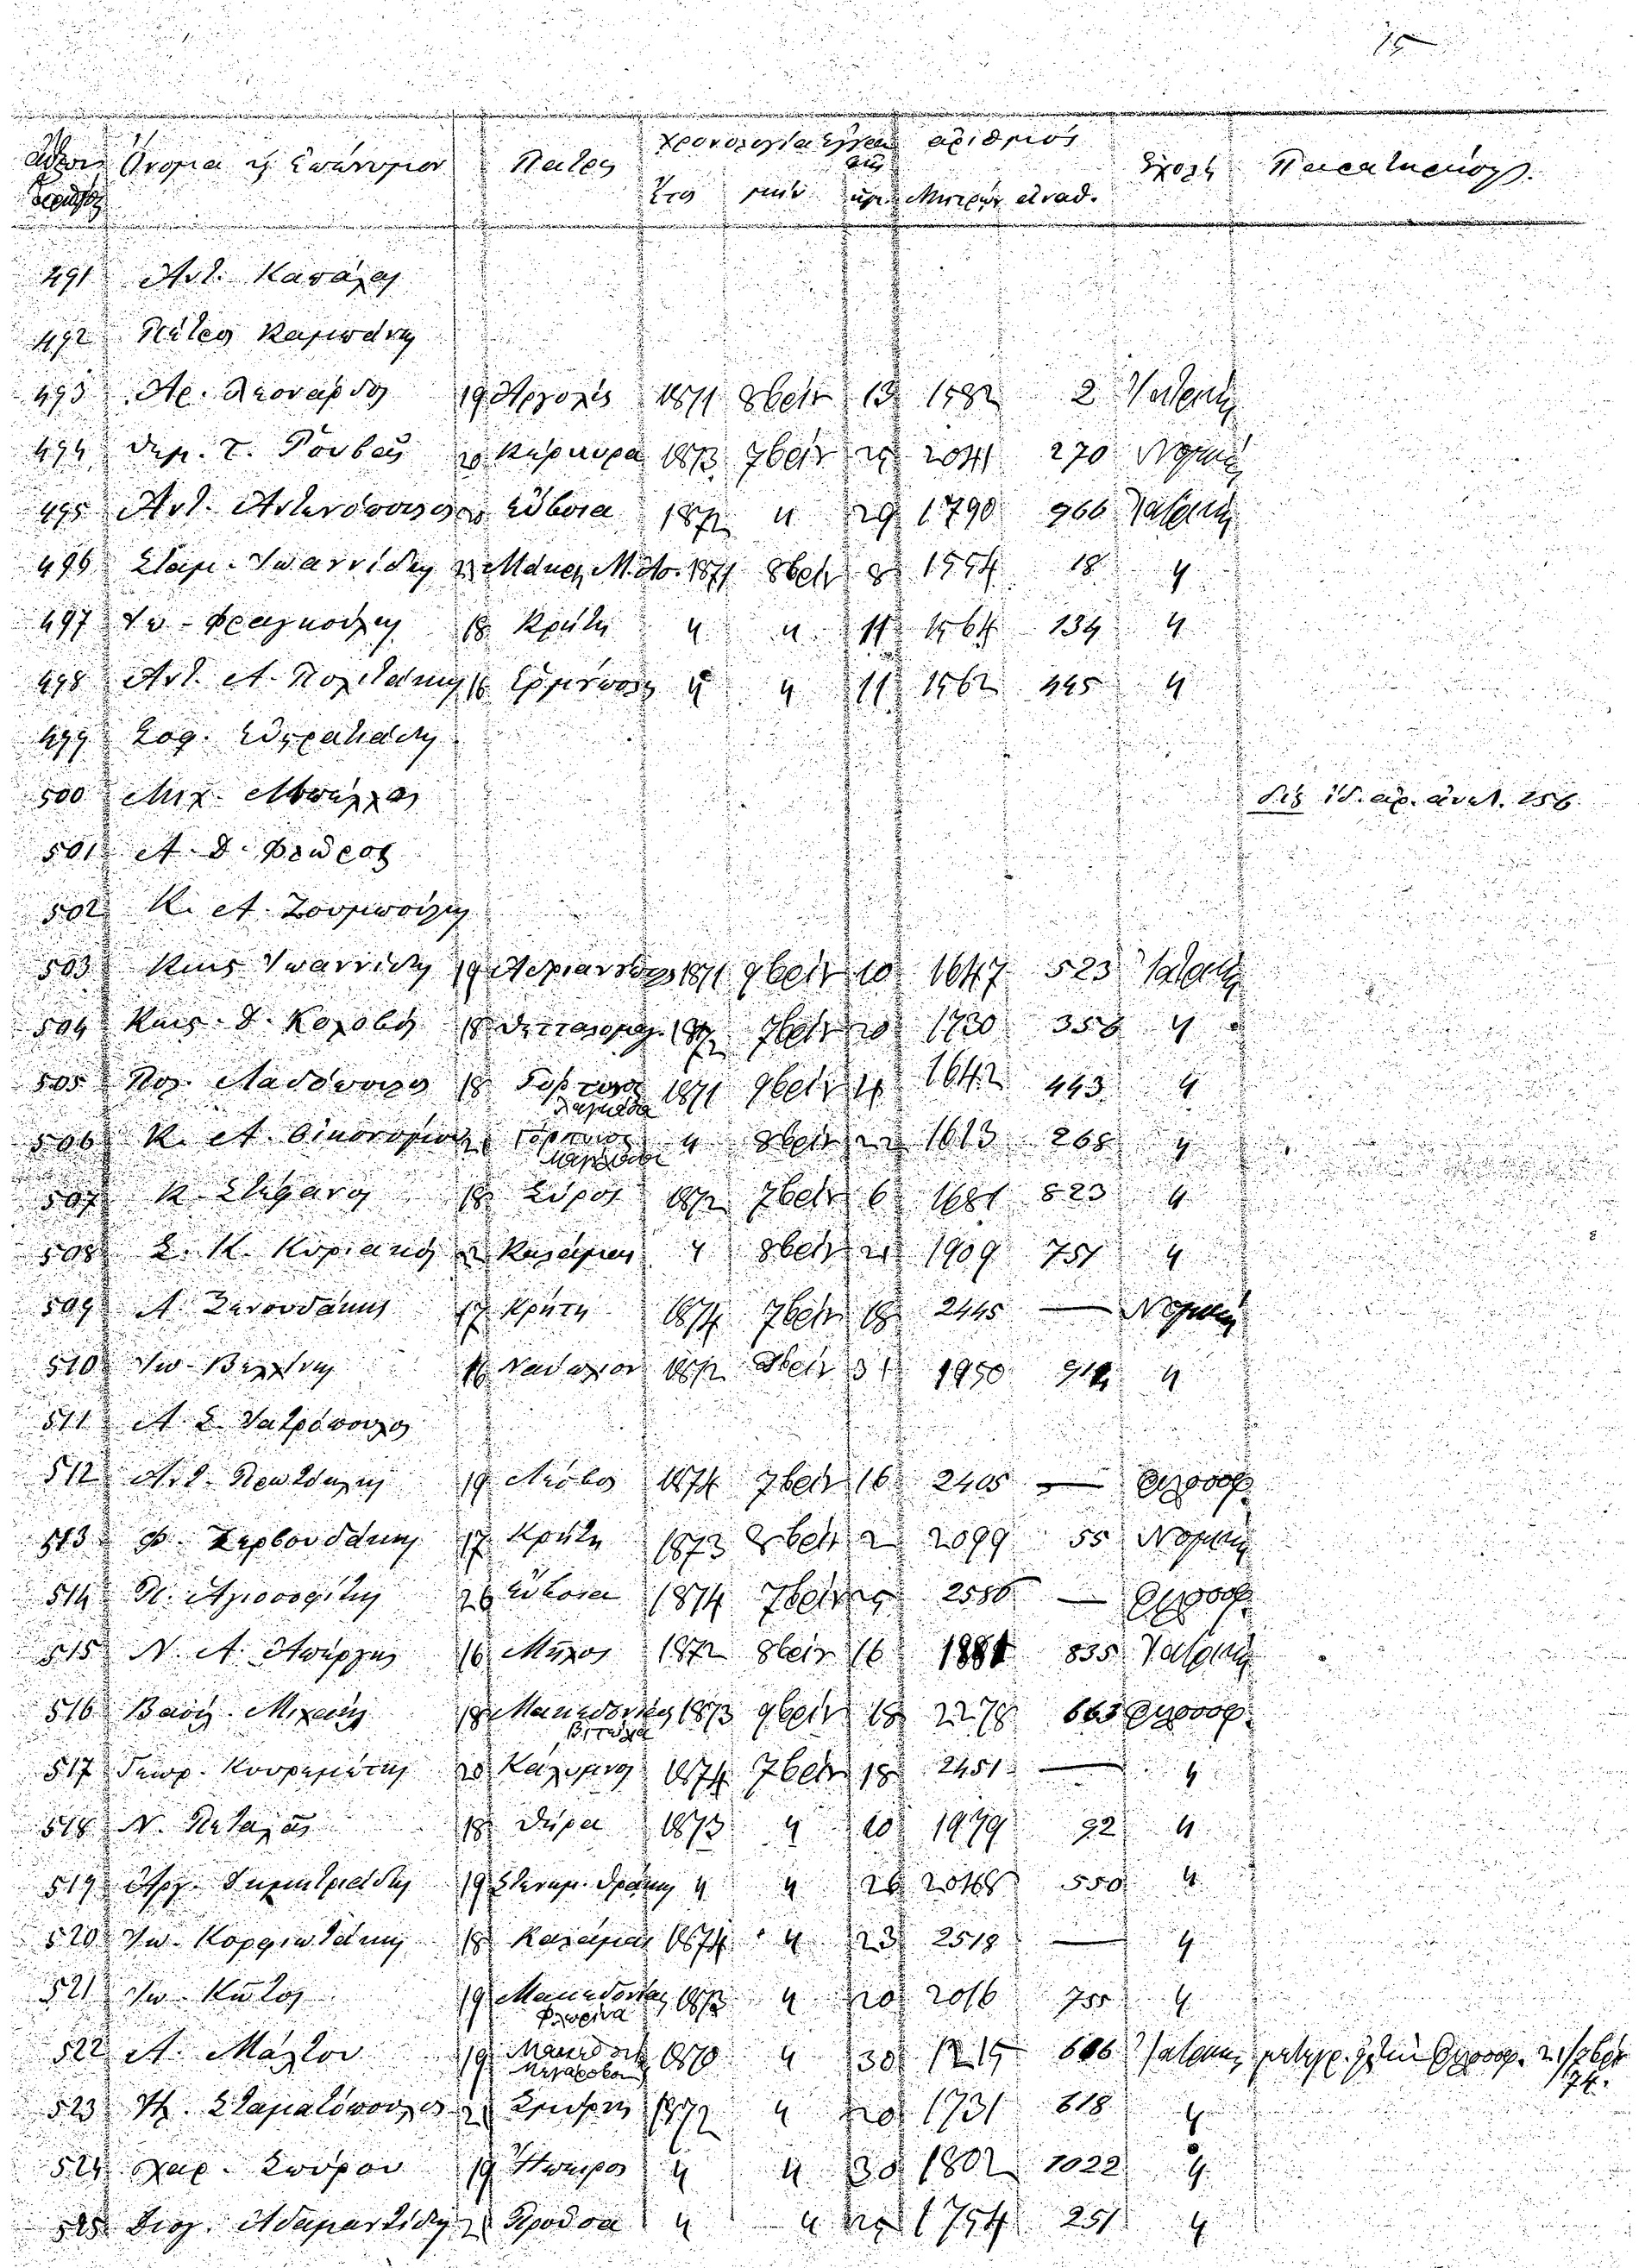 15
Ὄνομα ἢ Ἐπώνυμον Πατρὶς Χρονολογία ἐγγραφῆς ἀριθμὸς Σχολὴ Παρατηρήσεις
ἔτος μὴν ἡμ. Μητρώου ἀναν.
491 Ἀντ. Καπάλας
492 Πέτρος Καμπάνης
493 Ἀρ. Λεονάρδος 19 Ἀργολὶς 1871 8βρίου 13 1582 2 Ἰατρικὴ
494 Δημ. Τ. Ρούβας 20 Κέρκυρα 1873 7βρίου 25 2041 270 Νομικὴ
495 Ἀντ. Ἀντωνόπουλος 20 Εὔβοια 1872 〃 29 1790 966 Ἰατρικὴ
496 Σταμ. Ἰωαννίδης 21 Μάκρη Μ. Ἀσ. 1871 8βρίου 8 1554 18 〃
497 Ἰω. Φραγκούλης 18 Κρήτη 〃 〃 11 1564 134 〃
498 Ἀντ. Α. Πολιτάκης 16 Ἑρμούπολις 〃 〃 11 1562 445 〃
499 Σοφ.
500 Μιχ. Μπέλλας ἰδ. ἀρ. 256
501 Α. Δ. Φλῶρος
502 Κ. Α. Ζουμπούλης
503 Κωνς Ἰωαννίδης 19 Ἀδριανούπολις 1871 9βρίου 10 1647 523 Ἰατρικὴ
504 Κωνς. Δ. Κολοβὸς 18 1872 7βρίου 20 1730 356 〃
505 Πολ. Λαδόπουλος 18 1871 9βρίου 4 1642 443 〃
506 Κ. Α. Οἰκονόμου 21 〃 8βρίου 22 1613 268 〃
507 Κ. Στέφανος 18 Σύρος 1872 7βρίου 6 1681 823 〃
508 Σ. Κ. Κυριακὸς 22 Καλάμαι 〃 8βρίου 21 1909 751 〃
509 Α. Ξενουδάκης 17 Κρήτη 1874 7βρίου 18 2445 — Νομικὴ
510 Ἰω. Βελλίνης 16 Ναύπλιον 1872 8βρίου 31 1950 〃
511 Α. Σ. Ἰατρόπουλος
512 Ἀντ. Πρωτόπαλης 19 Λέσβος 1874 7βρίου 16 2405 — Φιλοσοφ.
513 Φ. Ζερβουδάκης 17 Κρήτη 1873 8βρίου 2 2099 55 Νομικὴ
514 Π. Ἁγιοσοφίτης 26 Εὔβοια 1874 7βρίου 25 2586 — Φιλοσοφ.
515 Ν. Α. Ἀπέργης 16 Μῆλος 1872 8βρίου 16 1881 835 Ἰατρικὴ
516 Βασίλ. Μιχαὴλ 18 Μακεδονίας Βιτώλια 1873 9βρίου 18 2278 663 Φιλοσοφ.
517 Γεωρ. Κουρεμέτης 20 Κάλυμνος 1874 7βρίου 18 2451 — 〃
518 Ν. Πεταλᾶς 18 Θήρα 1873 〃 10 1979 92 〃
519 Ἀργ. Δημητριάδης 19 Στενημ. Θράκης 〃 〃 26 2048 550 〃
520 Ἰω. Κορφιωτάκης 18 Καλάμαι 1874 〃 23 2518 — 〃
521 Ἰω. Κῶτος 19 Μακεδονίας Φλωρίνα 1873 〃 20 2016 755 〃
522 Α. Μάλτου 19 Μακεδονία Μεγάροβον 1870 〃 30 1215 606 Ἰατρικὴ μετεγρ. εἰς τὴν Φιλοσοφ. 21/7βρίου 74.
523 Ἠλ. Σταματόπουλος 21 1872 〃 20 1731 618 〃
524 Χαρ. Σπύρου 19 Ἤπειρος 〃 〃 30 1802 1022 〃
525 Διογ. Ἀδαμαντίδης 21 Προῦσα 〃 〃 25 1754 251 〃